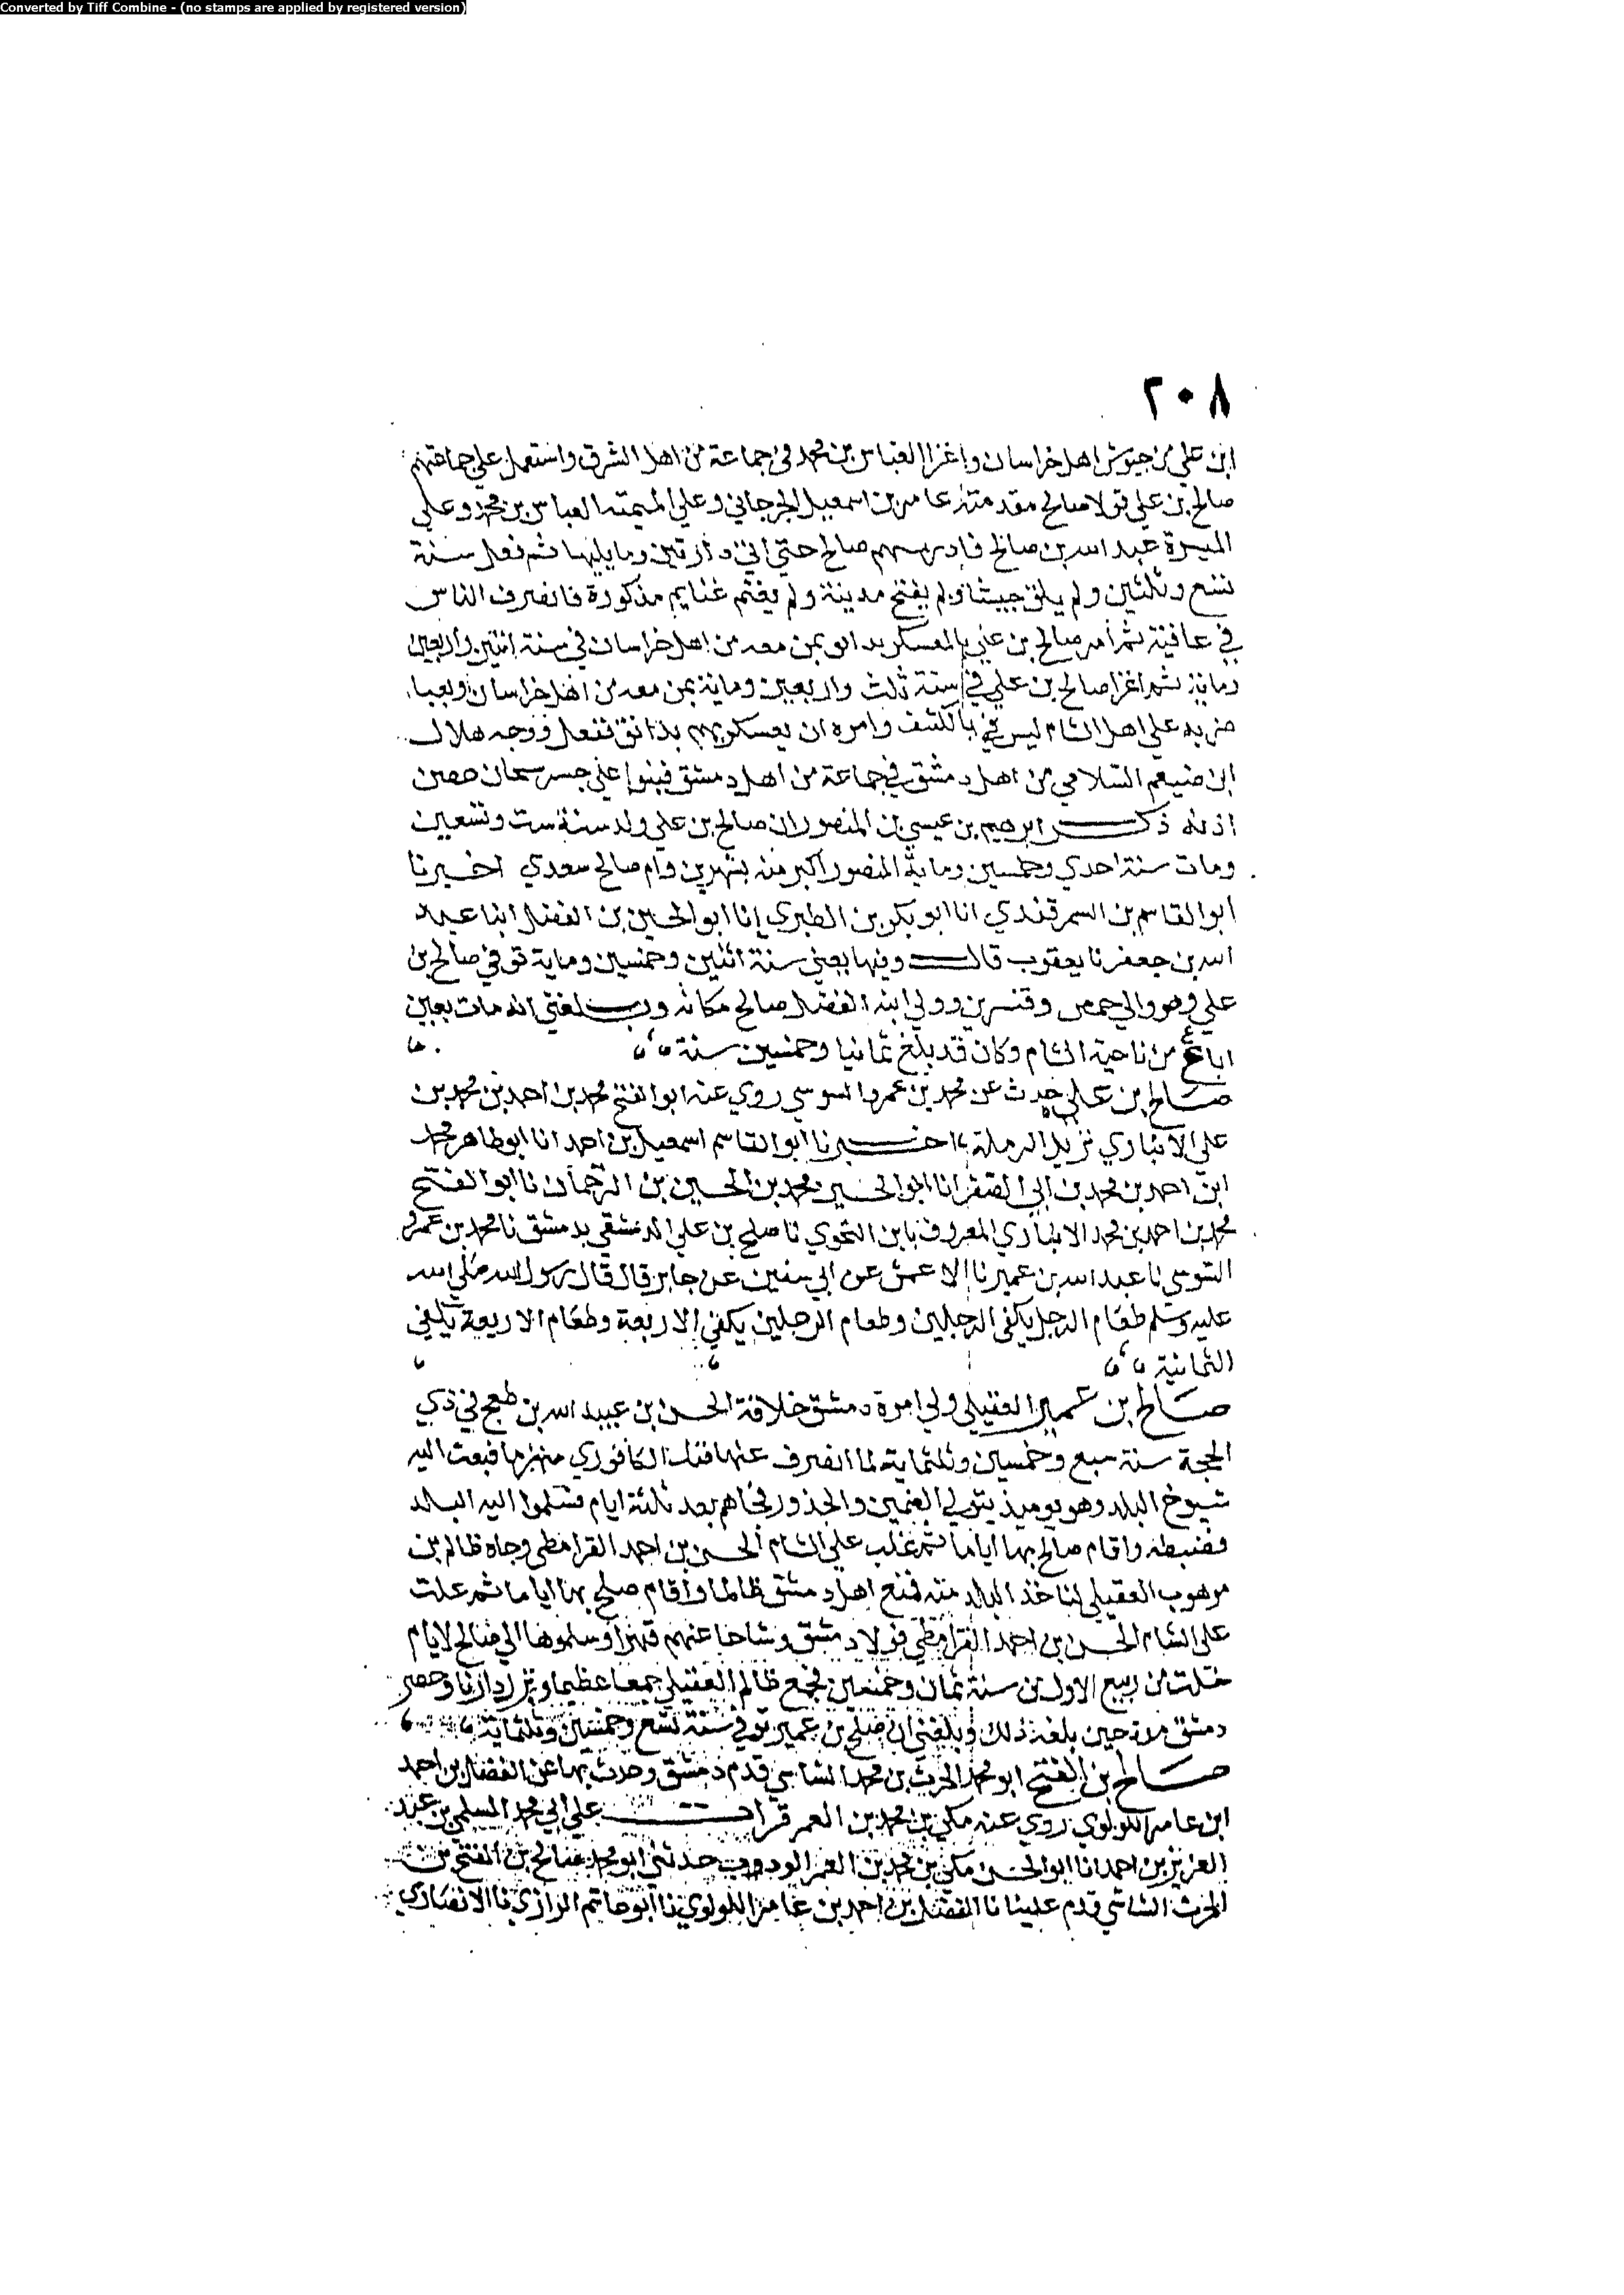 Converted by Tiff Combine - (no stamps are applied by registered version)
٢٠٨
ابن علي من جيوش اهل خراسان واغزا العباس بن محمد في جماعة من اهل الشرق واستعمل علي جماعتهم
صالح بن علي فولا صالح مقدمته عامر بن اسمعيل الجرجاني وعلي الميمنه العباس بن محمد وعلي
الميسرة عبد الله بن صالح فادربهم صالح حتي اتي وما يليها ثم قفل سنة
تسع وثلثين ولم يلق جيشا ولم يفتح مدينة ولم يغنم غنايم مذكورة فانصرف الناس
في عافية ثم امر صالح بن علي بالمعسكر بدابق بمن معه من اهل خراسان في سنة اثنين واربعين
وماية ثم اغزا صالح بن علي في سنة ثلث واربعين وماية بمن معه من اهل خراسان وبعبا
ضربه علي اهل الشام ليس في بالكثف وامره ان يعسكر بهم بدابق ففعل فوجه هلال
ابن ضيغم السلامي من اهل دمشق في جماعة من اهل دمشق فبنوا علي جسر سيحان حصن
اذنه ذكر ابرهيم بن عيسي بن المنصور ان صالح بن علي ولد سنة ست وتسعين
ومات سنة احدي وخمسين وماية المنصور اكبر منه بشهرين وام صالح سعدي اخبرنا
ابو القاسم بن السمرقندي انا ابو بكر بن الطبري انا ابو الحسين بن الفضل ابنا عبد
الله بن جعفر نا يعقوب قال وفيها يعني سنة اثنين وخمسين وماية توفي صالح بن
علي وهو والي حمص وقنسرين وولي ابنه الفضل صالح مكانه وبلغني انه مات بعين
اباغ من ناحية الشام وكان قد بلغ ثمانيا وخمسين سنة
صالح بن علي حدث عن محمد بن عمرو السوسي روي عنه ابو الفتح محمد بن احمد بن محمد بن
علي الانباري نزيل الرملة اخبرنا ابو القاسم اسمعيل بن احمد انا ابو طاهر محمد
ابن احمد بن محمد بن ابي الصقر انا ابو الحسين محمد بن الحسين بن الترجمان نا ابو الفتح
محمد بن احمد بن محمد الانباري المعروف بابن النحوي نا صلح بن علي الدمشقي بدمشق نا محمد بن عمرو
السوسي نا عبد الله بن عمير نا الاعمش عن ابي سفين عن جابر قال قال رسول الله صلي الله
عليه وسلم طعام الرجل يكفي الرجلين وطعام الرجلين يكفي الاربعة وطعام الاربعة يكفي
الثمانية
صالح بن عمير العقيلي ولي امرة دمشق خلافة الحسن بن عبيد الله بن طغج في ذي
الحجة سنة سبع وخمسين وثلثماية لما انصرف عنها فنك الكافوري منهزما فبعث اليه
شيوخ البلد وهو يوميذ يتولي والجذور فجاهم بعد ثلثة ايام فسلموا اليه البلد
فضبطه واقام صالح بها اياما ثم غلب علي الشام الحسن بن احمد القرامطي وجاه ظالم بن
مرهوب العقيلي لياخذ البلد منه فمنع اهل دمشق ظالما واقام صلح بها اياما ثم غلت
علي الشام الحسن بن احمد القرامطي فولا دمشق وشاحا عنهم قهرا وسلموها الي صالح لايام
خلت من ربيع الاول من سنة ثمان وخمسين فجمع ظالم العقيلي جمعا عظيما ونزل داريا وحصر
دمشق مدة حين بلغه ذلك وبلغني ان صلح بن عمير توفي سنة تسع وخمسين وثلثماية
صالح بن الفتح ابو محمد الحرث بن محمد الشاسي قدم دمشق وحدث بها عن الفضل بن احمد
ابن عامر اللولوي روي عنه مكي بن محمد بن الغمر قرات علي ابي محمد السلمي بن عبد
العزيز بن احمد انا ابو الحسن مكي بن محمد بن الغمر المودب حدثني ابو محمد صالح بن الفتح بن
الحرث الشاشي قدم علينا نا الفضل بن احمد بن عامر اللولوي نا ابو حاتم الرازي نا الانصاري